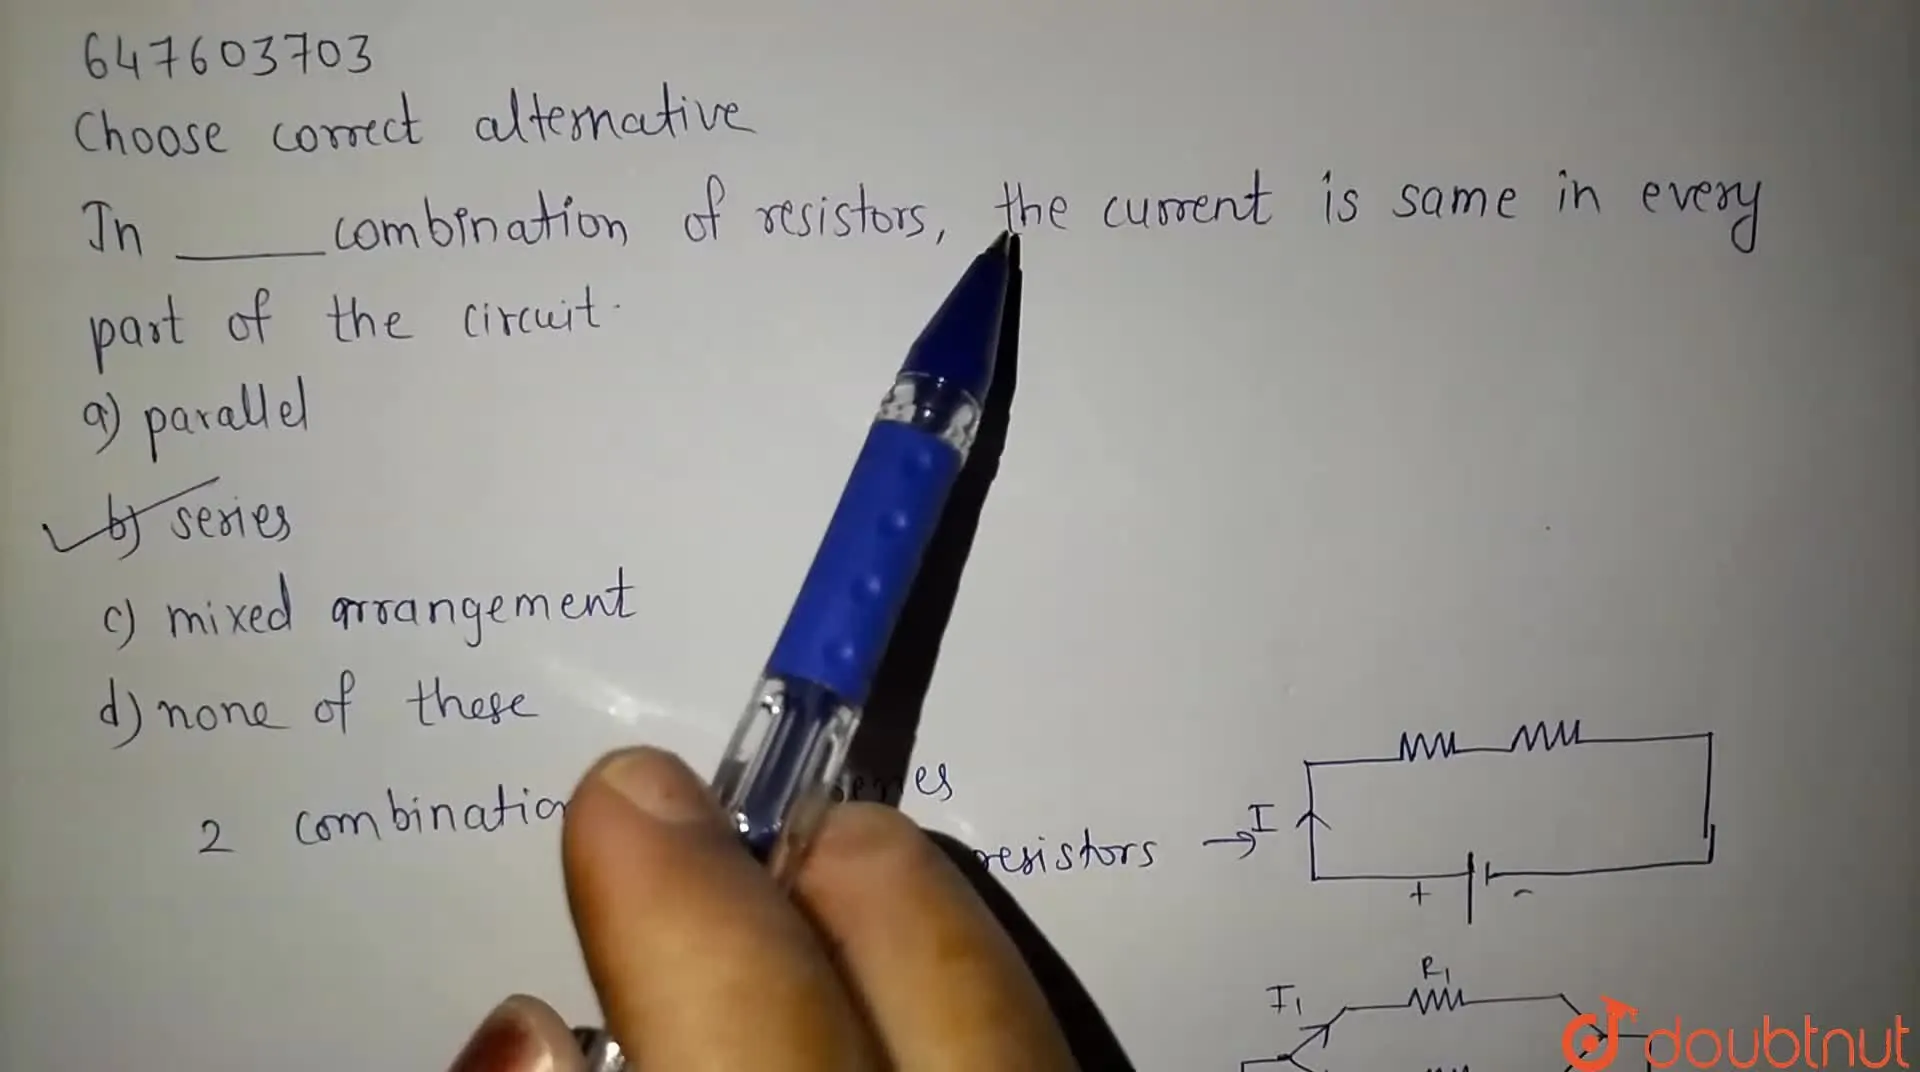 647603703
Choose correct alternative
In _____ combination of resistors, the current is same in every
part of the circuit.
a) parallel
b) series
c) mixed arrangement
d) none of these
2 combination series
resistors → I
+ −
R1
I1
doubtnut